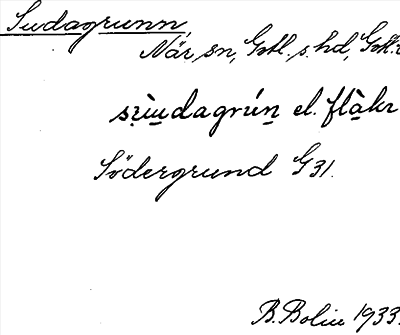 Sudagrunn,
När sn, Gotl. s. hd, Gotl.
sṛ̀ụudagrún̠ el. flà̠kr
Södergrund G 31.
B. Bolin 1933.